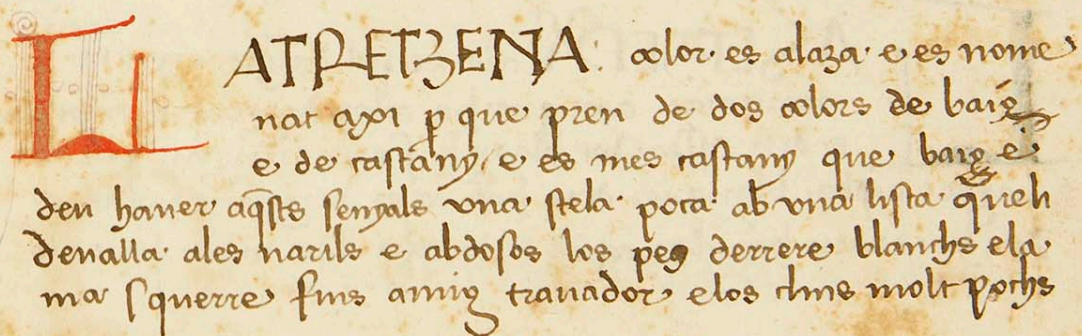 LATRETZENA: color· es alaza· e es nome
nat axi p̱ que pren de dos colors de baig
e de castany, e es mes castany que baig e
deu hauer aq̄sts senyals vna stela· poca· ab vna lista q̄ueli
deualla· ales narils e abdosos los peus derrere blanchs ela
ma squerre fins amig trauador elos clins molt pochs